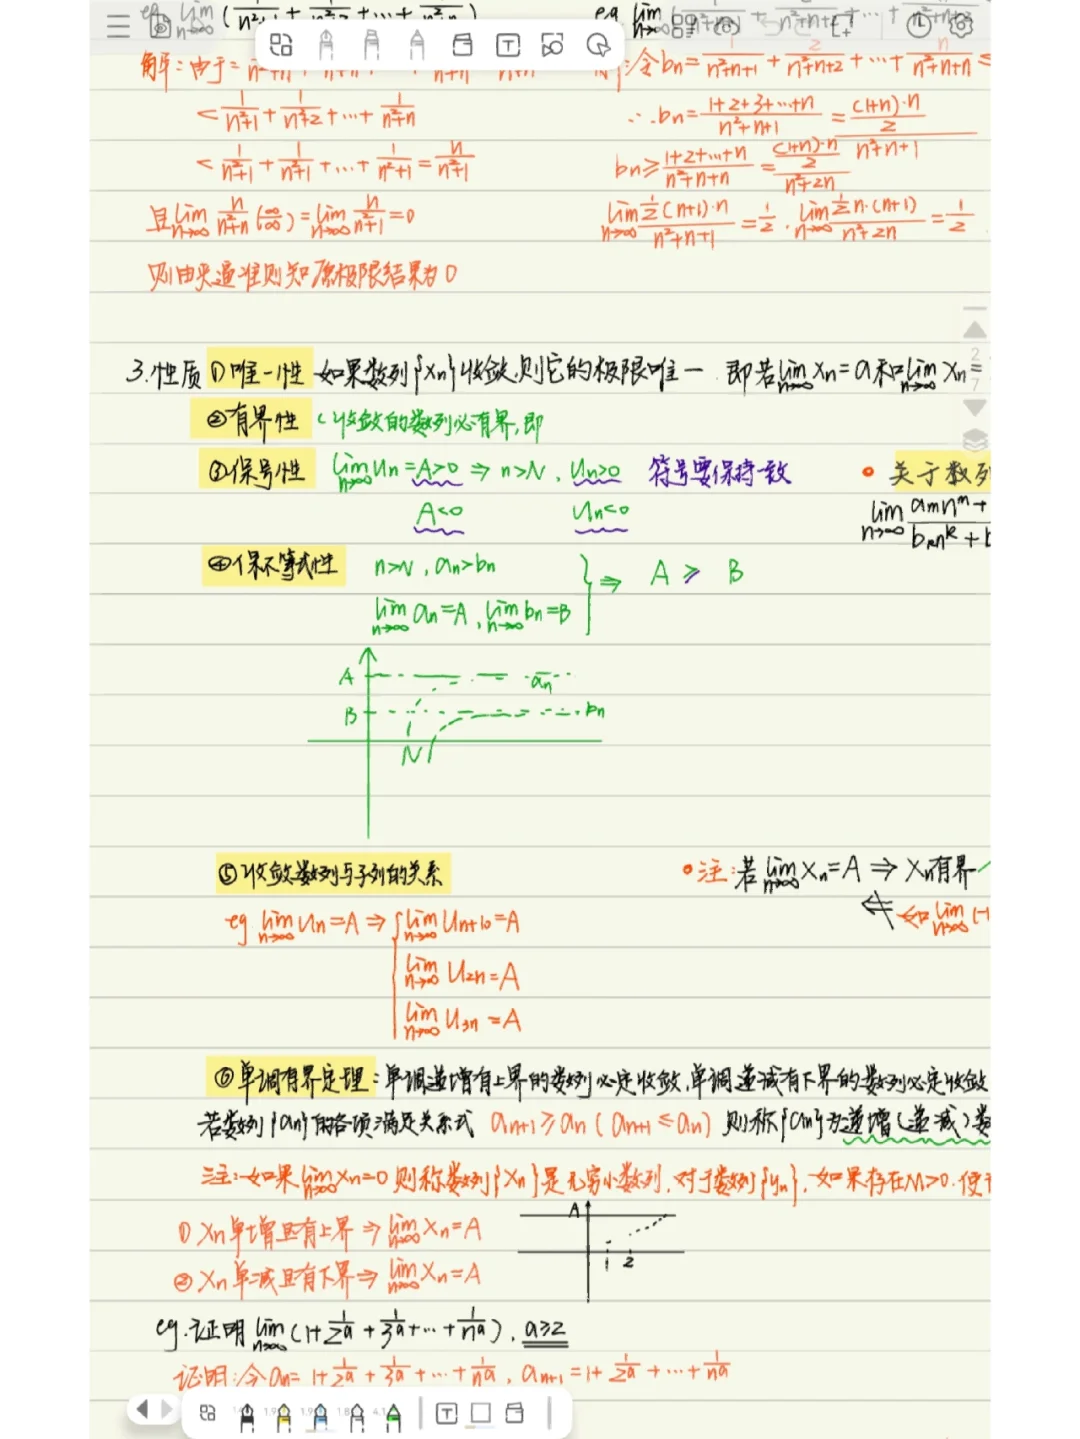 eg lim n→∞ (1/(n²+1) + 1/(n²+2) + … + 1/(n²+n))
解: 由于 =
< 1/(n²+1) + 1/(n²+2) + … + 1/(n²+n)
< 1/(n²+1) + 1/(n²+1) + … + 1/(n²+1) = n/(n²+1)
且 lim n→∞ n/(n²+n) (∞/∞) = lim n→∞ n/(n²+1) = 0
则由夹逼准则知原极限结果为0
eg lim n→∞
令 bn = 1/(n²+n+1) + 2/(n²+n+2) + … + n/(n²+n+n) ≤
∴ bn = (1+2+3+…+n)/(n²+n+1) = ((1+n)·n/2)/(n²+n+1)
bn ≥ (1+2+…+n)/(n²+n+n) = ((1+n)·n/2)/(n²+2n)
lim n→∞ (½(n+1)·n)/(n²+n+1) = 1/2 . lim n→∞ (½n·(n+1))/(n²+2n) = 1/2
3.性质 ①唯一性 如果数列{Xn}收敛,则它的极限唯一. 即若 lim n→∞ Xn = a 和 lim n→∞ Xn =
②有界性 (收敛的数列必有界,即
③保号性 lim n→∞ Un = A>0 ⇒ n>N, Un>0 符号要保持一致
A<0 Un<0
• 关于数列
lim n→∞ amn^m + / bkn^k + b
④保不等式性 n>N, an>bn
lim n→∞ an=A, lim n→∞ bn=B } ⇒ A ≥ B
A an
B bn
N
⑤收敛数列与子列的关系
eg lim n→∞ Un = A ⇒ { lim n→∞ Un+10 = A
lim n→∞ U2n = A
lim n→∞ U3n = A
•注: 若 lim n→∞ Xn = A ⇒ Xn有界
⇍ 如 lim n→∞ (-1
⑥单调有界定理: 单调递增有上界的数列必定收敛,单调递减有下界的数列必定收敛
若数列{an}的各项满足关系式 an+1 ≥ an ( an+1 ≤ an ) 则称{an}为递增(递减)数
注: 如果 lim n→∞ Xn=0 则称数列{Xn}是无穷小数列, 对于数列{yn}, 如果存在M>0. 使
① Xn单增且有上界 ⇒ lim n→∞ Xn = A
② Xn单减且有下界 ⇒ lim n→∞ Xn = A
A
1 2
eg. 证明 lim n→∞ (1 + 1/2^a + 1/3^a + … + 1/n^a), a≥2
证明: 令 an = 1 + 1/2^a + 1/3^a + … + 1/n^a, an+1 = 1 + 1/2^a + … + 1/n^a